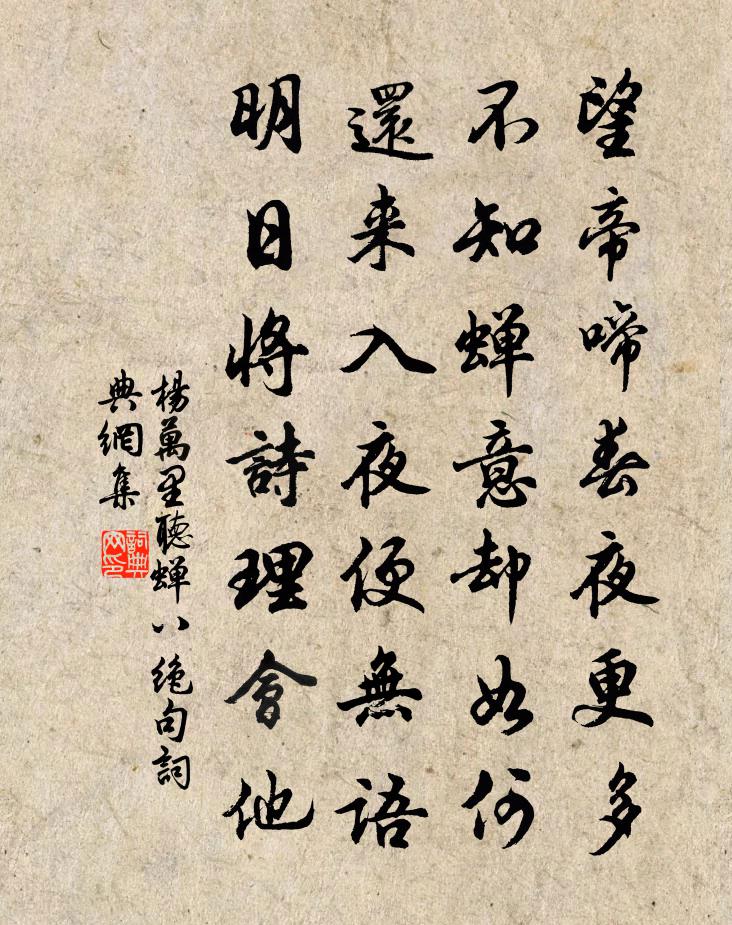 望帝啼春夜更多
不知蝉意却如何
還来入夜便無語
明日将詩理會他
楊萬里聽蝉八絶句詞
典網集
詞典
网印